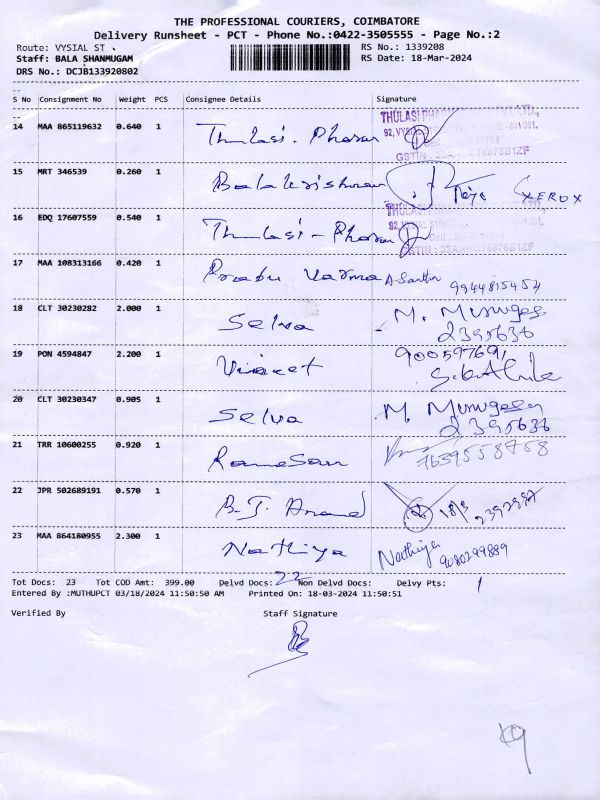 THE PROFESSIONAL COURIERS, COIMBATORE
Delivery Runsheet - PCT - Phone No.:0422-3505555 - Page No.:2
Route: VYSIAL ST
RS No.: 1339208
Staff: BALA SHANMUGAM
RS Date: 18-Mar-2024
DRS No.: DCJB133920802
S No Consignment No Weight PCS Consignee Details Signature
THULASI PHARMACIES
14 MAA 865119632 0.640 1 Thulasi. Pharma
GSTIN
15 MRT 346539 0.260 1 Balakrishnan XEROX
THULASI
16 EDQ 17607559 0.540 1 Thulasi - Pharma
GSTIN
17 MAA 108313166 0.420 1 Prabu Varma
18 CLT 30230282 2.000 1 Selva M. Murugesa
2395636
19 PON 4594847 2.200 1 Vineet
20 CLT 30230347 0.905 1 Selva M. Murugesa
2395636
21 TRR 10600255 0.920 1 Ramesan 7639558758
22 JPR 502689191 0.570 1 B.J. Anand 18/3
23 MAA 864180955 2.300 1 Nathiya Nathiya
9080299889
Tot Docs: 23 Tot COD Amt: 399.00 Delvd Docs: 22 Non Delvd Docs: Delvy Pts: 1
Entered By :MUTHUPCT 03/18/2024 11:50:50 AM Printed On: 18-03-2024 11:50:51
Verified By Staff Signature